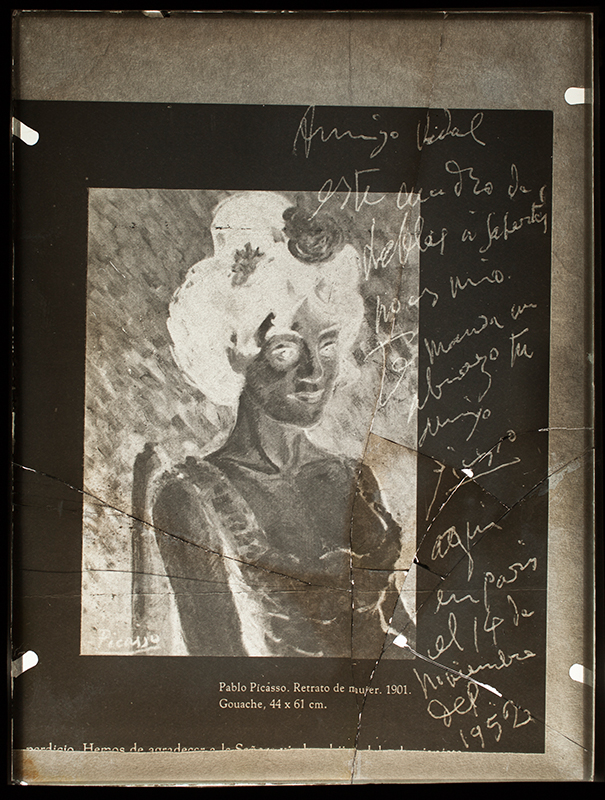 Amigo Vidal
este cuadro de
deblas á Sabartés
no es mio.
Te manda un
abrazo tu
amigo
Picasso
aqui
en paris
el 14 de
Noviembre
del
1952
Picasso
Pablo Picasso. Retrato de mujer. 1901.
Gouache, 44 x 61 cm.
perdicio. Hemos de agradecer a la